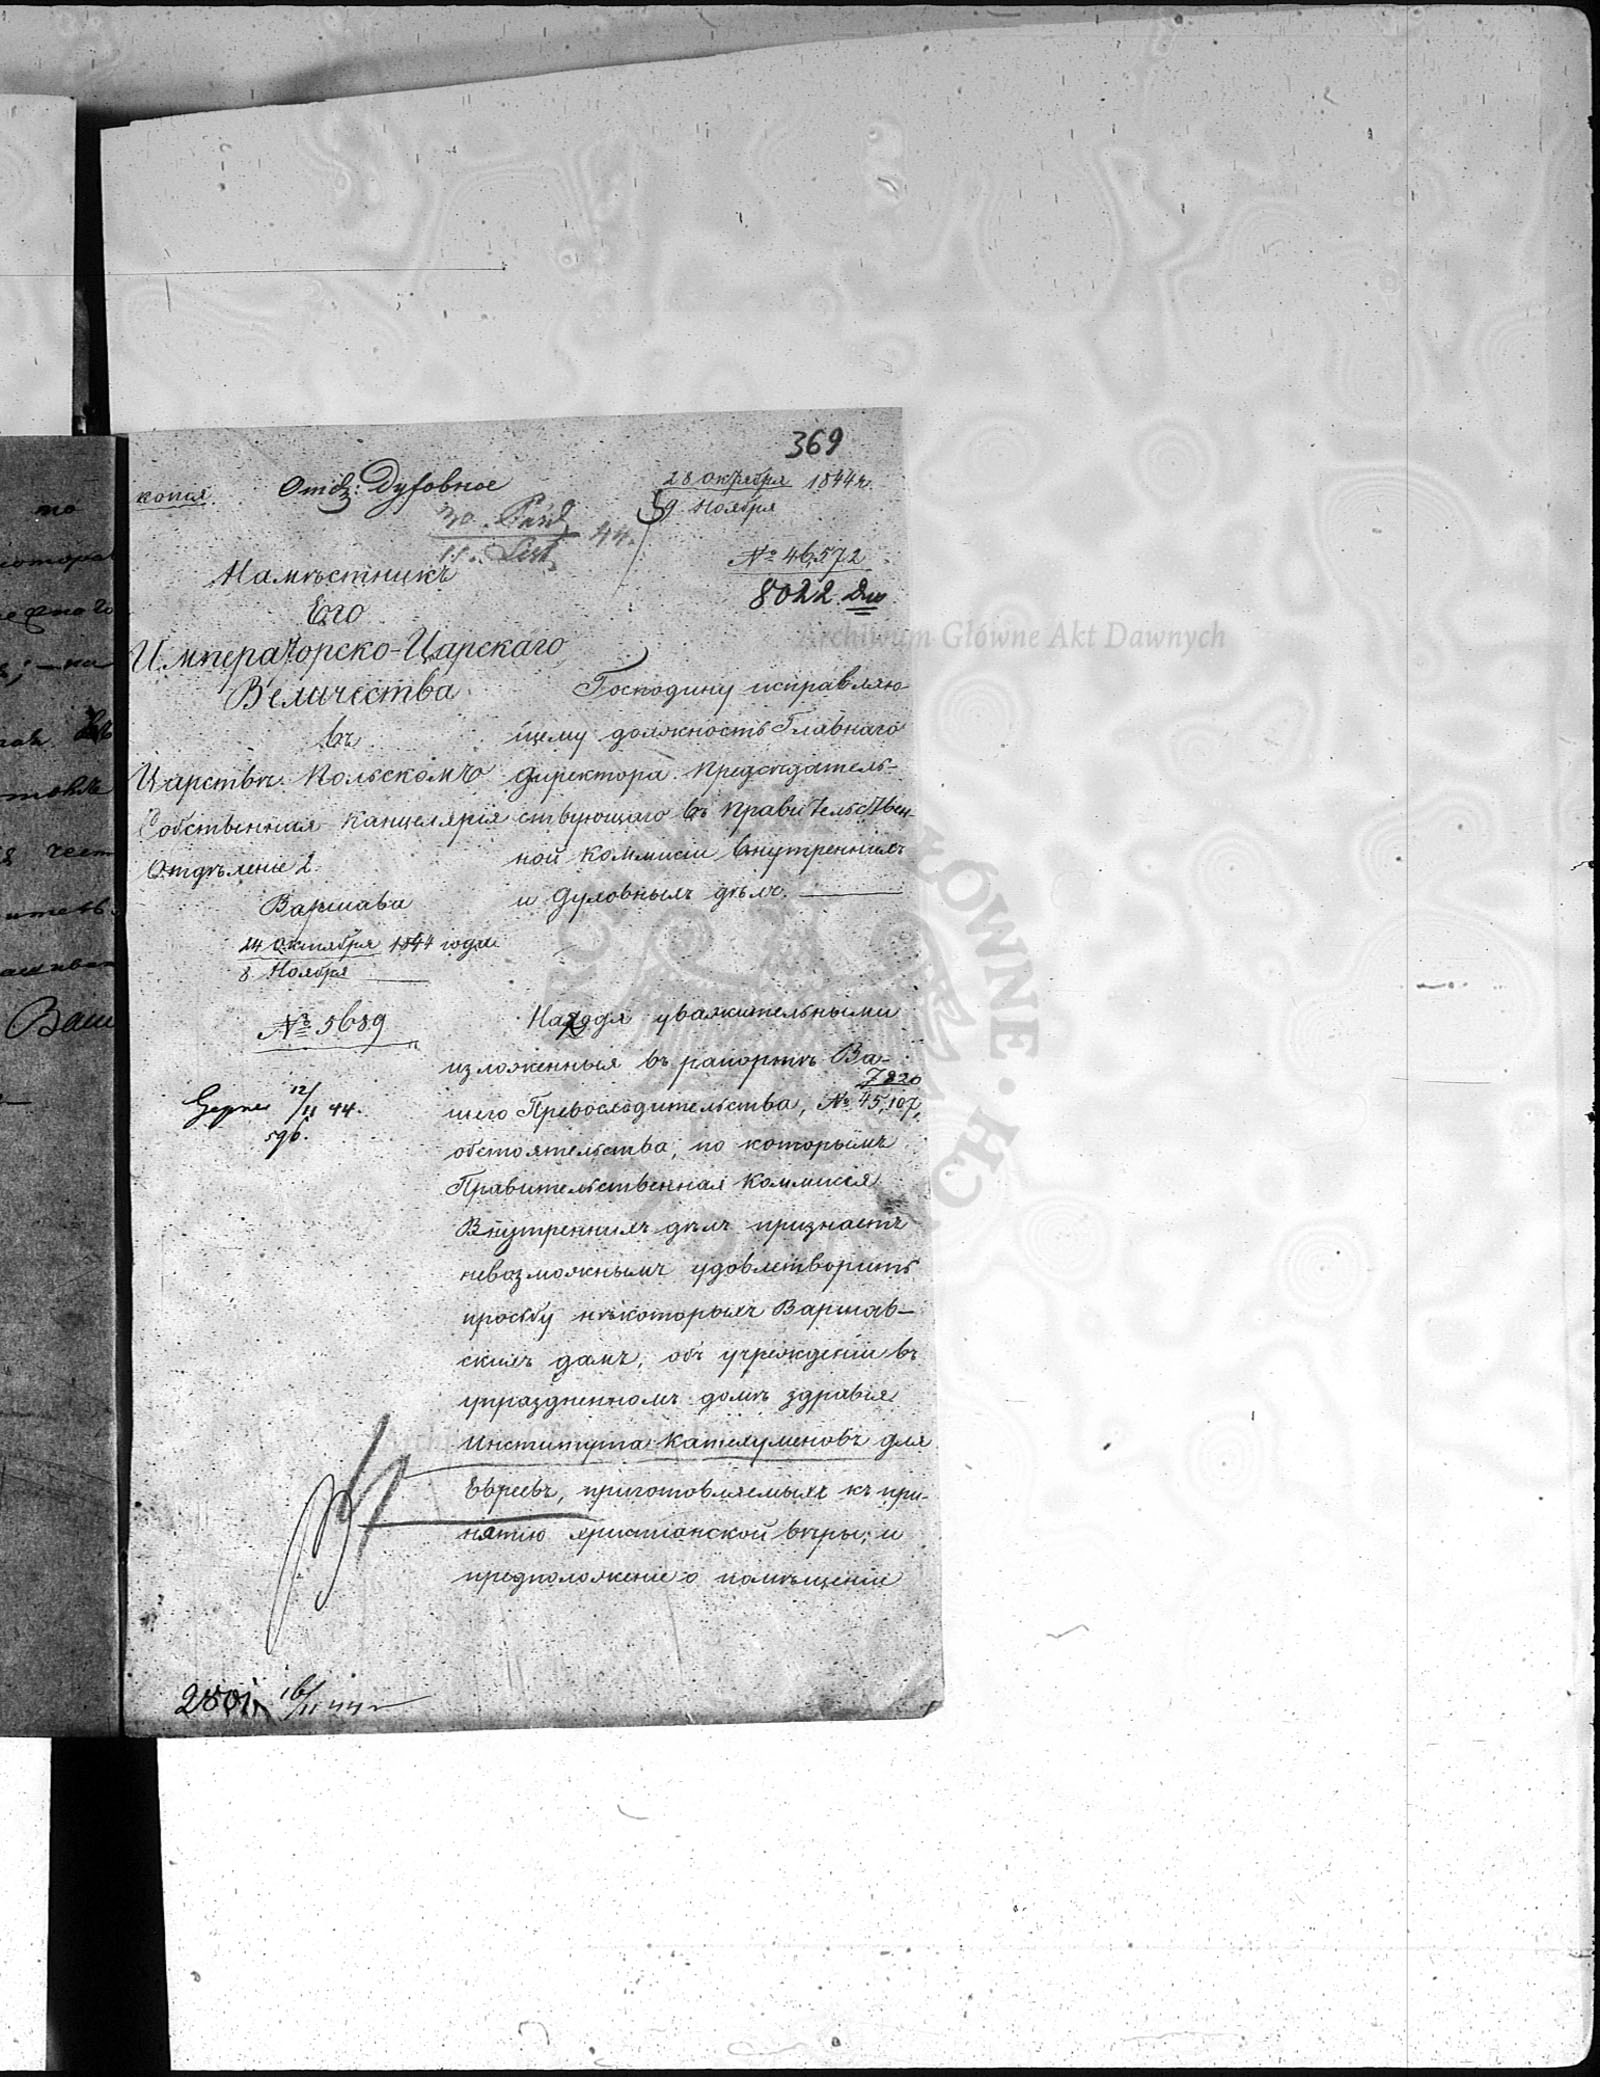 369
копія.
Отд: Духовное
28 Октября 1844 г.
9 Ноября
30. Paźd.
11. List. 44.
№ 46,572
8022
Намѣстникъ
Его
Императорско-Царскаго
Величества
въ
Царствѣ Польскомъ
Собственная Канцелярія
Отдѣленіе 2.
Варшава
24 Октября 1844 года
8 Ноября
№ 5689
12/11 44.
596.
Господину исправляю-
щему должность Главнаго
Директора Предсѣдатель-
ствующаго въ Правительствен-
ной Коммисіи Внутреннихъ
и Духовныхъ дѣлъ.
Находя уважительными
изложенныя въ рапортѣ Ва-
7820
шего Превосходительства, № 45,107,
обстоятельства, по которымъ
Правительственная Коммисія
Внутреннихъ дѣлъ признаетъ
невозможнымъ удовлетворить
просьбу нѣкоторыхъ Варшав-
скихъ дамъ, объ учрежденіи въ
упраздненномъ домѣ здравія
Института Катехуменовъ для
Евреевъ, приготовляемыхъ къ при-
нятію христіанской вѣры, и
предположеніе о помѣщеніи
16/11 44
Archiwum Główne Akt Dawnych